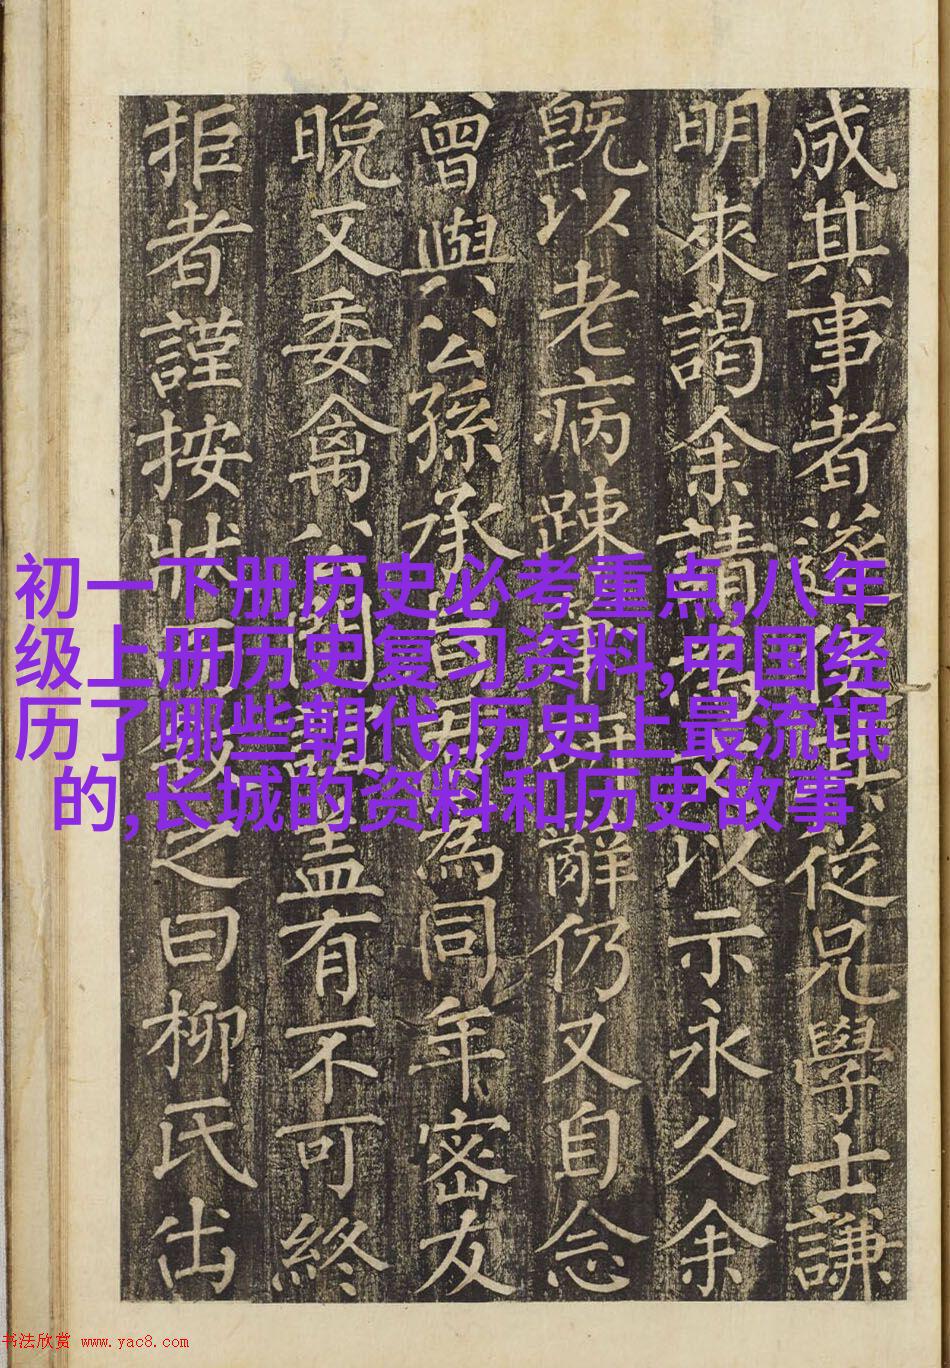 成其事者遂從兄學士謙
明來謁余請以示永久余
既以老病踈辭仍又自念
曾與公孫承為同年密友
晚又委禽盖有不可終
拒者謹按狀之曰柳氏出
初一下册历史必考重点,八年
级上册历史复习资料,中国经
历了哪些朝代,历史上最流氓
的,长城的资料和历史故事
书法欣赏 www.yac8.com